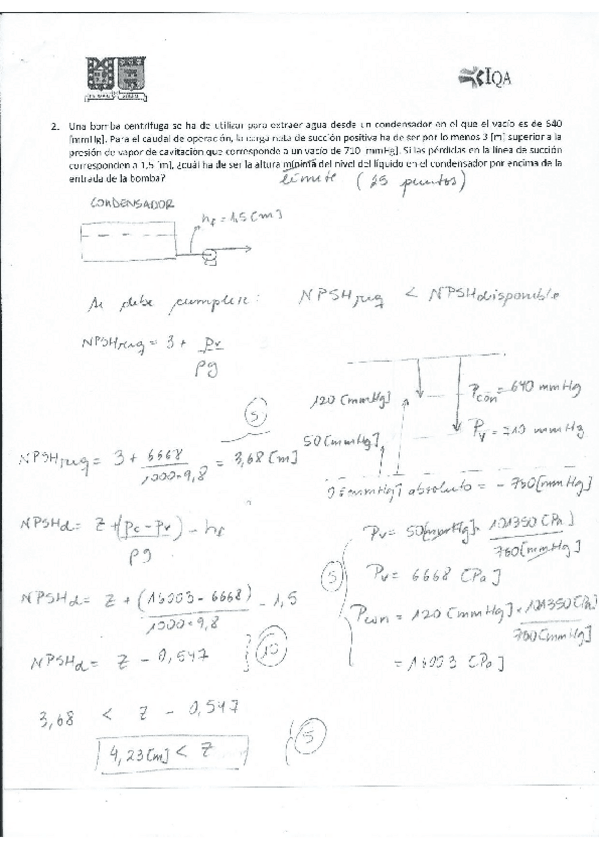 IQA
2. Una bomba centrífuga se ha de utilizar para extraer agua desde un condensador en el que el vacío es de 640
[mmHg]. Para el caudal de operación, la carga neta de succión positiva ha de ser por lo menos 3 [m] superior a la
presión de vapor de cavitacion que corresponde a un vacío de 710 mmHg]. Si las pérdidas en la línea de succión
corresponden a 1,5 [m], ¿cuál ha de ser la altura mínima del nivel del líquido en el condensador por encima de la
entrada de la bomba?
límite (25 puntos)
CONDENSADOR
hf = 1,5 [m]
Se debe cumplir: NPSHreq < NPSHdisponible
NPSHreq = 3 + pv
ρg
120 [mmHg]
Pcon = 640 mmHg
50 [mmHg]
Pv = 710 mmHg
5
NPSHreq = 3 + 6668 = 3,68 [m]
1000·9,8
0 [mmHg] absoluto = - 760 [mmHg]
NPSHd = z + (pc - pv) - hf
ρg
Pv = 50 [mmHg] · 101350 [Pa]
760 [mmHg]
5
Pv = 6668 [Pa]
NPSHd = z + (16003 - 6668) - 1,5
1000·9,8
Pcon = 120 [mmHg] × 101350 [Pa]
760 [mmHg]
= 16003 [Pa]
NPSHd = z - 0,547
10
3,68 < z - 0,547
4,23 [m] < z
5